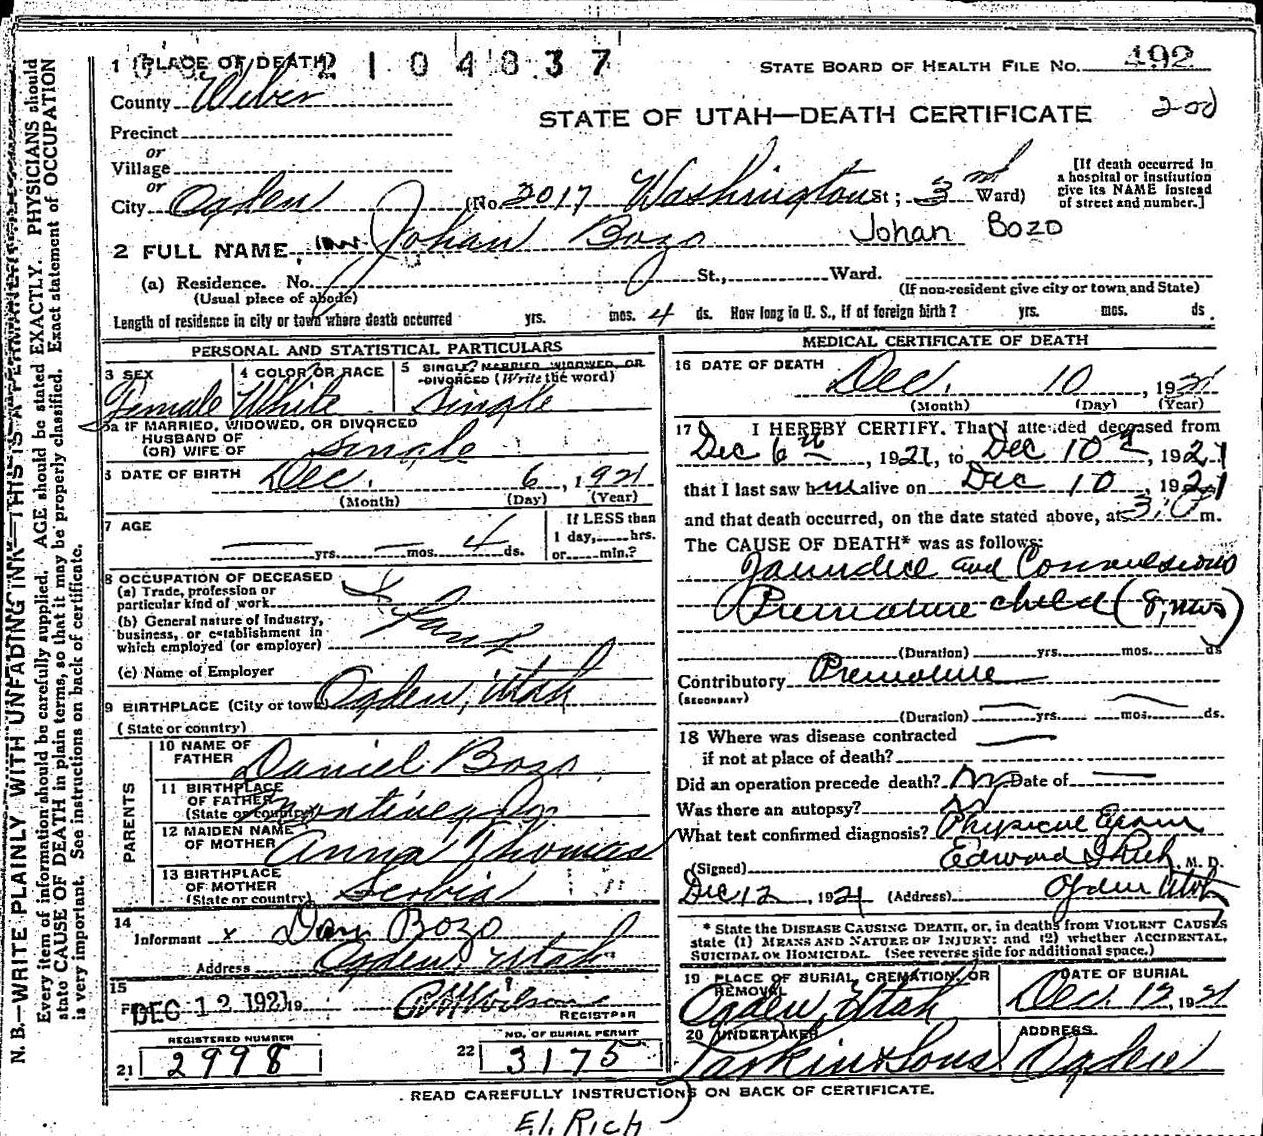 1 PLACE OF DEATH 2104837
STATE BOARD OF HEALTH FILE NO. 492
County Weber
STATE OF UTAH—DEATH CERTIFICATE
Precinct
or
Village
or
City Ogden (No. 2017 Washington St; 3rd Ward)
[If death occurred in
a hospital or institution
give its NAME instead
of street and number.]
2 FULL NAME Johan Bozo Johan Bozo
(a) Residence. No. St., Ward.
(Usual place of abode) (If non-resident give city or town and State)
Length of residence in city or town where death occurred yrs. mos. 4 ds. How long in U. S., if of foreign birth? yrs. mos. ds.
PERSONAL AND STATISTICAL PARTICULARS
3 SEX Female
4 COLOR OR RACE White
5 SINGLE, MARRIED, WIDOWED, OR
DIVORCED (Write the word)
Single
5a IF MARRIED, WIDOWED, OR DIVORCED
HUSBAND OF
(OR) WIFE OF Single
6 DATE OF BIRTH Dec. 6, 1921
(Month) (Day) (Year)
7 AGE — yrs. — mos. 4 ds.
If LESS than
1 day, hrs.
or min.?
8 OCCUPATION OF DECEASED
(a) Trade, profession or
particular kind of work
(b) General nature of Industry,
business, or establishment in
which employed (or employer)
(c) Name of Employer
9 BIRTHPLACE (City or town) Ogden, Utah
(State or country)
PARENTS
10 NAME OF
FATHER Daniel Bozo
11 BIRTHPLACE
OF FATHER
(State or country)
12 MAIDEN NAME
OF MOTHER Anna Thomas
13 BIRTHPLACE
OF MOTHER
(State or country) Serbia
14
Informant x Dan Bozo
Address Ogden, Utah
15
DEC 12 1921 19 Wilson
REGISTRAR
REGISTERED NUMBER
21 2998
NO. OF BURIAL PERMIT
22 3175
MEDICAL CERTIFICATE OF DEATH
16 DATE OF DEATH
Dec. 10, 1921
(Month) (Day) (Year)
17 I HEREBY CERTIFY. That I attended deceased from
Dec 6th, 1921, to Dec 10th, 1921
that I last saw him alive on Dec 10 1921
and that death occurred, on the date stated above, at m.
The CAUSE OF DEATH* was as follows:
Jaundice and Convulsions
Premature child (8, mos)
(Duration) yrs. mos. ds
Contributory Premature
(SECONDARY)
(Duration) — yrs. — mos. ds.
18 Where was disease contracted
if not at place of death? —
Did an operation precede death? No Date of —
Was there an autopsy? No
What test confirmed diagnosis? Physical Exam
(Signed) Edward I Rich M. D.
Dec 12, 1921 (Address) Ogden Utah
* State the DISEASE CAUSING DEATH, or, in deaths from VIOLENT CAUSES
state (1) MEANS AND NATURE OF INJURY; and (2) whether ACCIDENTAL,
SUICIDAL or HOMICIDAL. (See reverse side for additional space.)
19 PLACE OF BURIAL, CREMATION, OR
REMOVAL
Ogden, Utah
DATE OF BURIAL
Dec. 12, 1921
20 UNDERTAKER
Larkin & Sons
ADDRESS
Ogden
READ CAREFULLY INSTRUCTIONS ON BACK OF CERTIFICATE.
E.I. RICH
N. B.—WRITE PLAINLY WITH UNFADING INK—THIS IS A PERMANENT
Every item of information should be carefully supplied. AGE should be stated EXACTLY. PHYSICIANS should
state CAUSE OF DEATH in plain terms, so that it may be properly classified. Exact statement of OCCUPATION
is very important. See instructions on back of certificate.